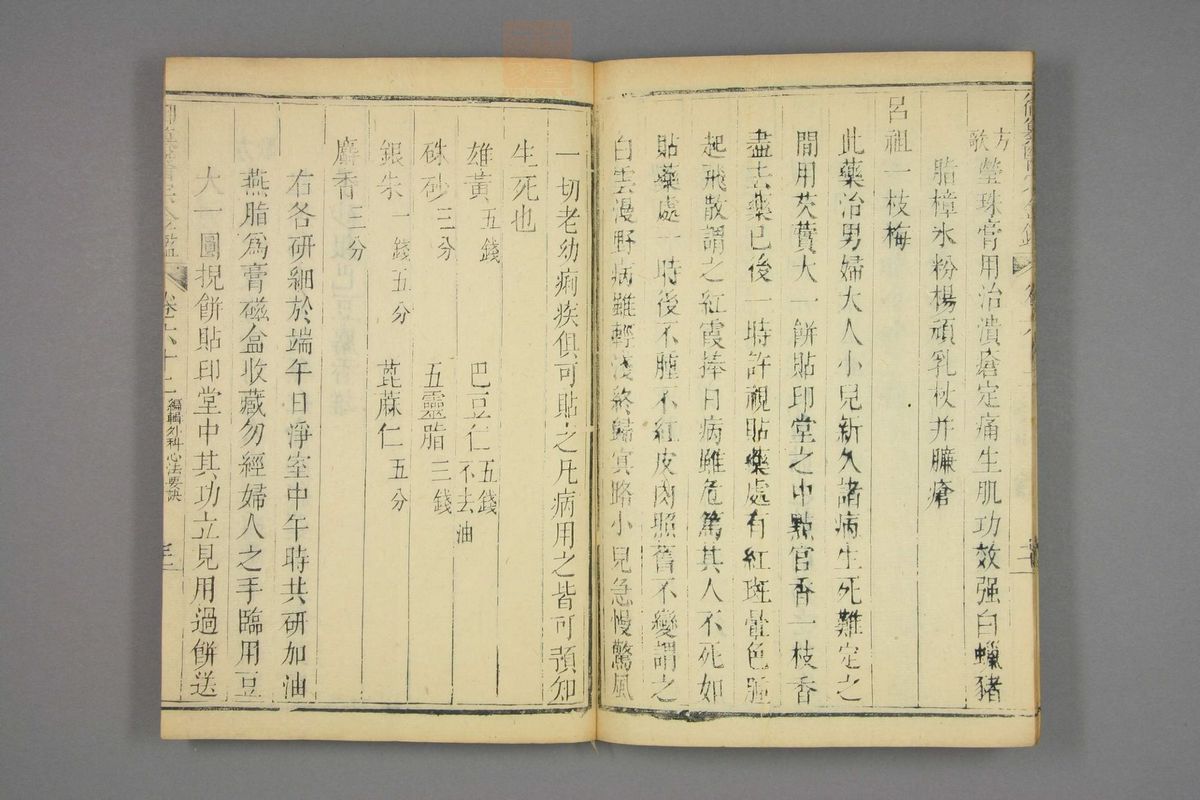 方歌 瑩珠膏用治潰瘡定痛生肌功效强白蠟猪
脂樟氷粉楊頑乳杖并臁瘡
呂祖一枝梅
此藥治男婦大人小兒新久諸病生死難定之
間用芡實大一餅貼印堂之中點官香一枝香
盡去藥已後一時許視貼藥處有紅斑暈色腫
起飛散謂之紅霞捧日病雖危篤其人不死如
貼藥處一時後不腫不紅皮肉照舊不變謂之
白雲漫野病雖輕淺終歸冥路小兒急慢驚風
一切老幼痢疾俱可貼之凡病用之皆可預知
生死也
雄黃五錢 巴豆仁五錢不去油
硃砂三分 五靈脂三錢
銀朱一錢五分 蓖蔴仁五分
麝香三分
右各研細於端午日淨室中午時共研加油
燕脂爲膏磁盒收藏勿經婦人之手臨用豆
大一圓捏餅貼印堂中其功立見用過餅送
卷六十二 編輯外科心法要訣